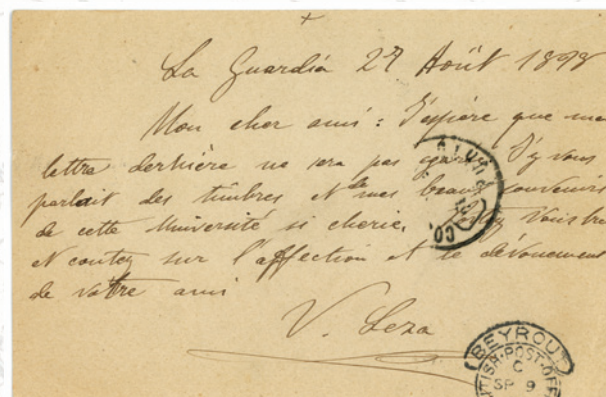 La Guardia 27 Août 1898
Mon cher ami: J'espère que ma
lettre dernière ne sera pas J'y vous
parlait des timbres et de mes beaux souvenirs
de cette Université si cherie. Vous
et contez sur l'affection et le dévouement
de vottre ami
V. Leza
CO.
BEYROUT
BRITISH·POST·OFF
C
SP 9